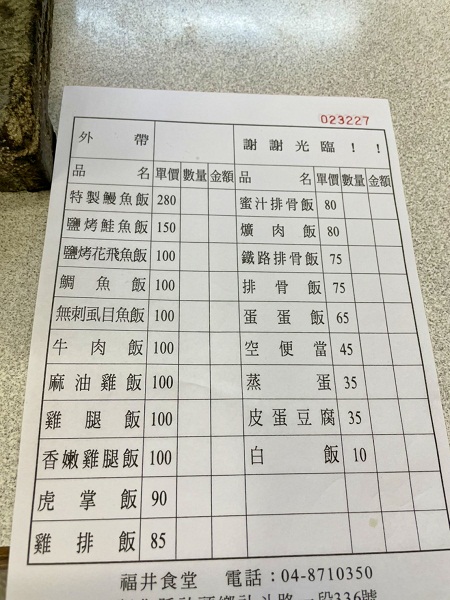 023227
外帶 謝謝光臨！！
品名 單價 數量 金額 品名 單價 數量 金額
特製鰻魚飯 280 蜜汁排骨飯 80
鹽烤鮭魚飯 150 爌肉飯 80
鹽烤花飛魚飯 100 鐵路排骨飯 75
鯛魚飯 100 排骨飯 75
無刺虱目魚飯 100 蛋蛋飯 65
牛肉飯 100 空便當 45
麻油雞飯 100 蒸蛋 35
雞腿飯 100 皮蛋豆腐 35
香嫩雞腿飯 100 白飯 10
虎掌飯 90
雞排飯 85
福井食堂 電話：04-8710350
一段336號